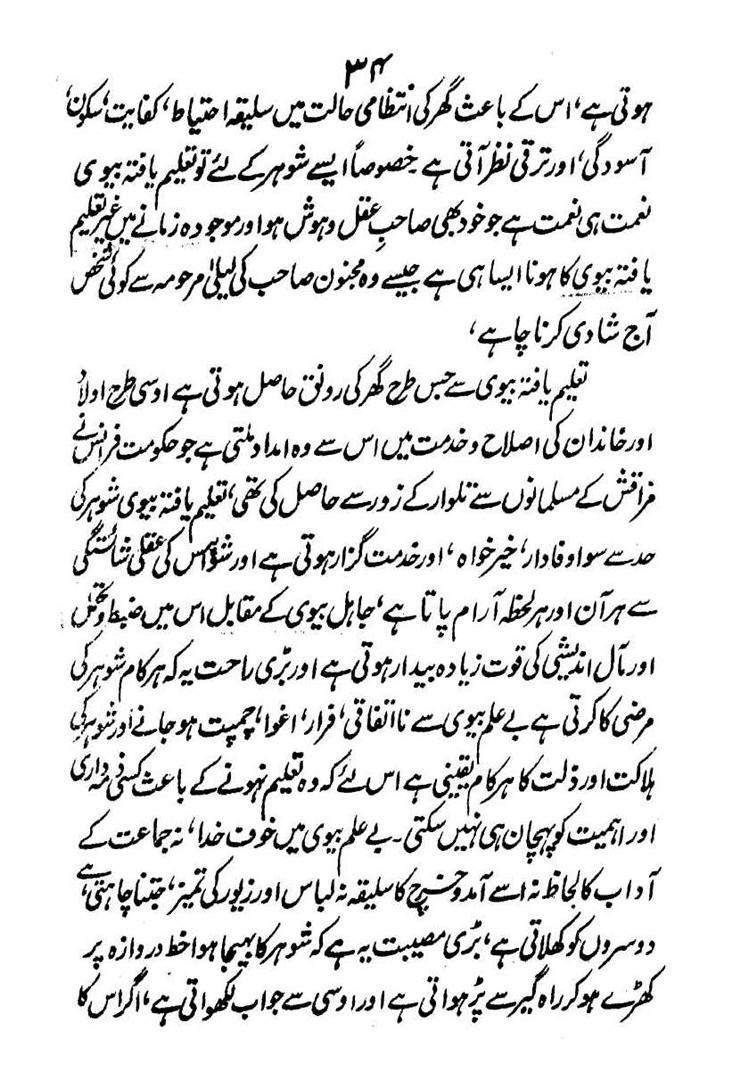 ۳۴
ہوتی ہے، اس کے باعث گھر کی انتظامی حالت میں سلیقہ احتیاط، کفایت، سکون،
آسودگی، اور ترقی نظر آتی ہے خصوصاً ایسے شوہر کے لئے تو تعلیم یافتہ بیوی
نعمت ہی نعمت ہے جو خود بھی صاحبِ عقل و ہوش ہو اور موجودہ زمانے میں غیر تعلیم
یافتہ بیوی کا ہونا ایسا ہی ہے جیسے وہ مجنون صاحب کی لیلیٰ مرحومہ سے کوئی شخص
آج شادی کرنا چاہے،
تعلیم یافتہ بیوی سے جس طرح گھر کی رونق حاصل ہوتی ہے اوسی طرح اولاد
اور خاندان کی اصلاح و خدمت میں اس سے وہ امداد ملتی ہے جو حکومت فرانس نے
مراقش کے مسلمانوں سے تلوار کے زور سے حاصل کی تھی، تعلیم یافتہ بیوی شوہر کی
حد سے سوا وفادار، خیر خواہ، اور خدمت گزار ہوتی ہے اور شوہر اس کی عقلی شائستگی
سے ہر آن اور ہر لحظہ آرام پاتا ہے، جاہل بیوی کے مقابل اس میں ضبط و تحمل
اور مآل اندیشی کی قوت زیادہ بیدار ہوتی ہے اور بڑی راحت یہ کہ ہر کام شوہر کی
مرضی کا کرتی ہے بے علم بیوی سے نااتفاقی، فرار، اغوا، چمپت ہو جانے اور شوہر کی
ہلاکت اور ذلت کا ہر کام یقینی ہے اس لئے کہ وہ تعلیم نہونے کے باعث کسی ذمہ داری
اور اہمیت کو پہچان ہی نہیں سکتی۔ بے علم بیوی میں خوف خدا، نہ جماعت کے
آداب کا لحاظ نہ اسے آمد و خرچ کا سلیقہ نہ لباس اور زیور کی تمیز، جتنا چاہتی ہے
دوسروں کو کھلاتی ہے، بڑی مصیبت یہ ہے کہ شوہر کا بھیجا ہوا خط دروازہ پر
کھڑے ہو کر راہ گیر سے پڑھواتی ہے اور اوسی سے جواب لکھواتی ہے، اگر اس کا